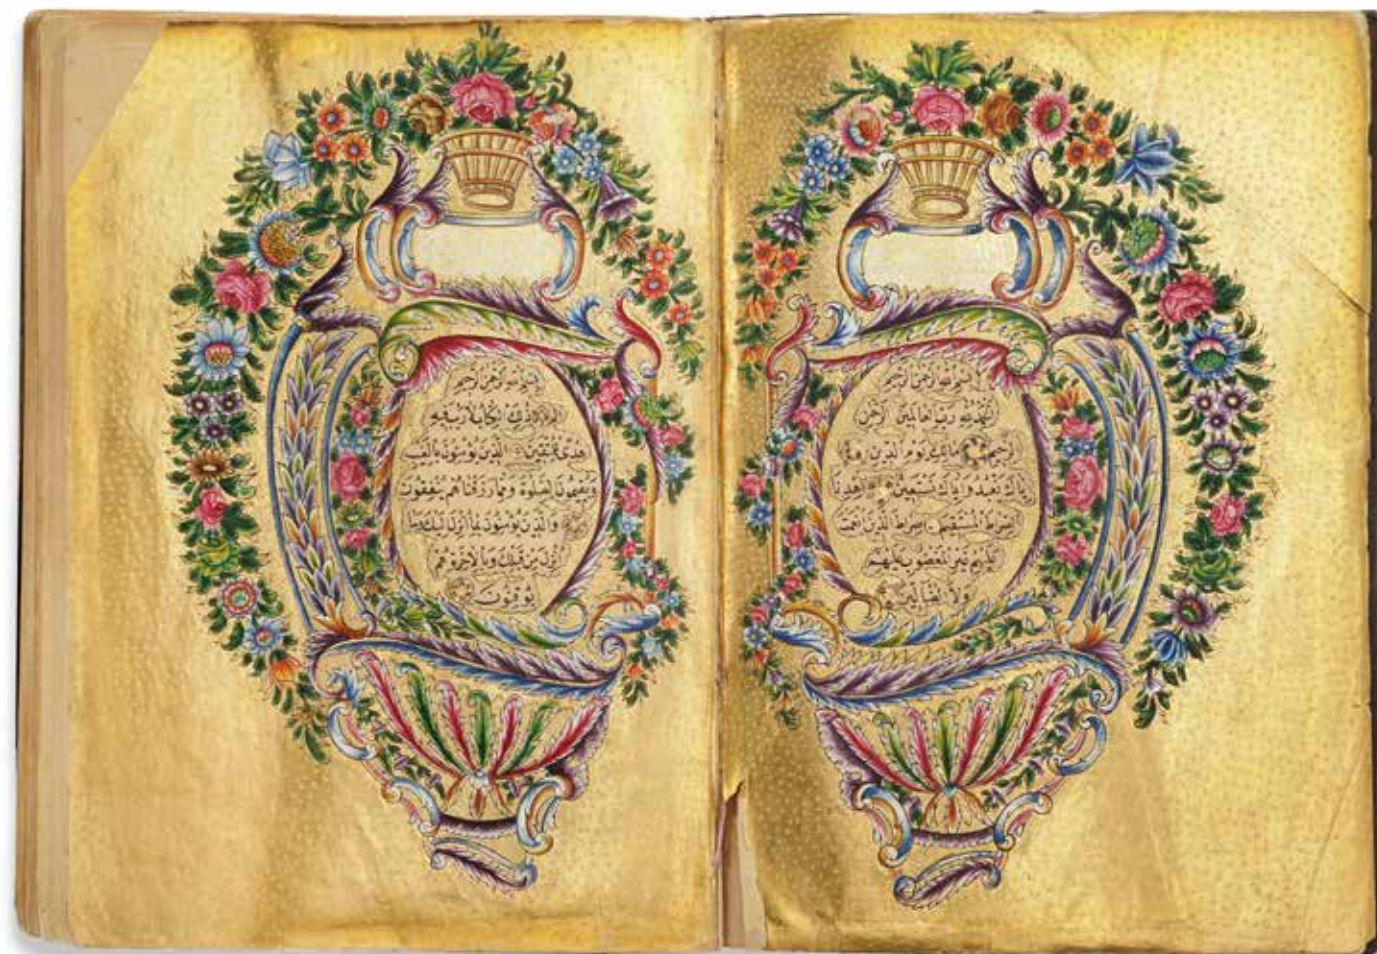 بسم الله الرحمن الرحيم
الحمد لله رب العالمين الرحمن
الرحيم مالك يوم الدين
اياك نعبد واياك نستعين اهدنا
الصراط المستقيم صراط الذين انعمت
عليهم غير المغضوب عليهم
ولا الضالين
بسم الله الرحمن الرحيم
الم ذلك الكتاب لا ريب فيه
هدى للمتقين الذين يؤمنون بالغيب
ويقيمون الصلوة ومما رزقناهم ينفقون
والذين يؤمنون بما انزل اليك وما
انزل من قبلك وبالاخرة هم
يوقنون